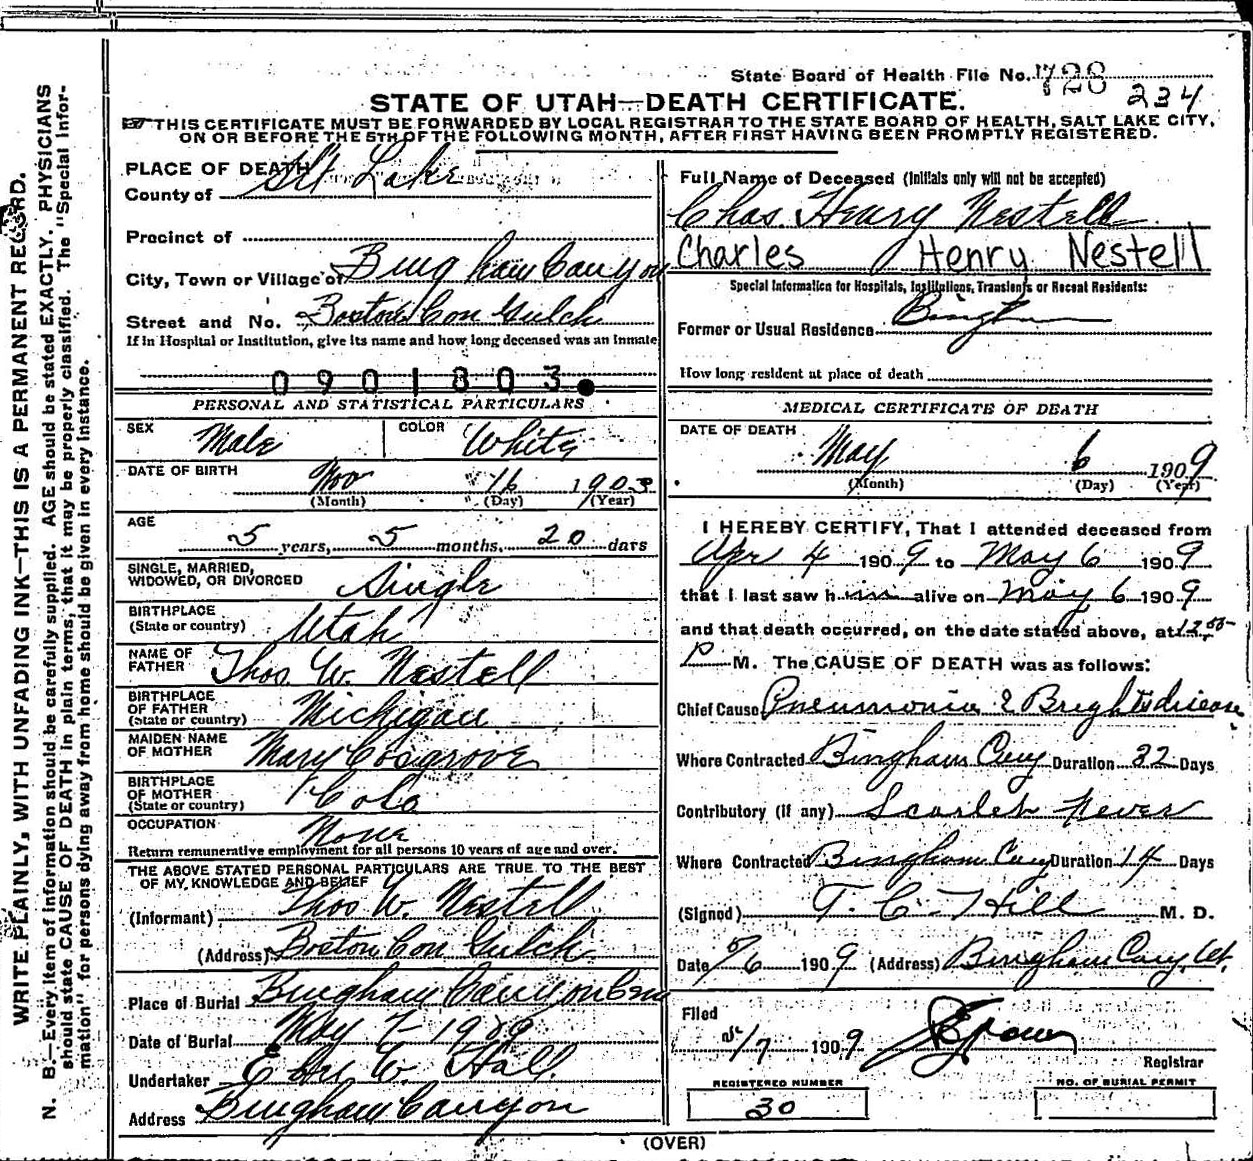 WRITE PLAINLY, WITH UNFADING INK—THIS IS A PERMANENT RECORD.
N. B.—Every item of information should be carefully supplied. AGE should be stated EXACTLY. PHYSICIANS
should state CAUSE OF DEATH in plain terms, that it may be properly classified. The "Special Infor-
mation" for persons dying away from home should be given in every instance.
State Board of Health File No. 1728
234
STATE OF UTAH—DEATH CERTIFICATE.
THIS CERTIFICATE MUST BE FORWARDED BY LOCAL REGISTRAR TO THE STATE BOARD OF HEALTH, SALT LAKE CITY,
ON OR BEFORE THE 5TH OF THE FOLLOWING MONTH, AFTER FIRST HAVING BEEN PROMPTLY REGISTERED.
PLACE OF DEATH
County of Slt Lake
Precinct of
City, Town or Village of Bingham Canyon
Street and No. Boston Con Gulch
If in Hospital or Institution, give its name and how long deceased was an inmate
0901803
PERSONAL AND STATISTICAL PARTICULARS
SEX Male COLOR White
DATE OF BIRTH Nov 16 1903
(Month) (Day) (Year)
AGE
5 years, 5 months, 20 days
SINGLE, MARRIED,
WIDOWED, OR DIVORCED Single
BIRTHPLACE
(State or country) Utah
NAME OF
FATHER Thos. W. Nestell
BIRTHPLACE
OF FATHER
(State or country) Michigan
MAIDEN NAME
OF MOTHER Mary Cosgrove
BIRTHPLACE
OF MOTHER
(State or country) Colo
OCCUPATION None
Return remunerative employment for all persons 10 years of age and over.
THE ABOVE STATED PERSONAL PARTICULARS ARE TRUE TO THE BEST
OF MY KNOWLEDGE AND BELIEF
(Informant) Thos W. Nestell
(Address) Boston Con Gulch
Place of Burial Bingham Canyon Cem
Date of Burial May 7- 1909
Undertaker W. Hall
Address Bingham Canyon
Full Name of Deceased (Initials only will not be accepted)
Chas. Henry Nestell
Charles Henry Nestell
Special Information for Hospitals, Institutions, Transients or Recent Residents:
Former or Usual Residence Bingham
How long resident at place of death
MEDICAL CERTIFICATE OF DEATH
DATE OF DEATH
May 6 1909
(Month) (Day) (Year)
I HEREBY CERTIFY, That I attended deceased from
Apr 4 1909 to May 6 1909
that I last saw him alive on May 6 1909
and that death occurred, on the date stated above, at
P M. The CAUSE OF DEATH was as follows:
Chief Cause Pneumonia & Brights disease
Where Contracted Bingham Cany Duration 22 Days
Contributory (if any) Scarlet Fever
Where Contracted Bingham Cany Duration 14 Days
(Signed) T. C. Hill M. D.
Date 5/6 1909 (Address) Bingham Cany, Ut.
Filed
5/7 1909
Registrar
REGISTERED NUMBER
30
NO. OF BURIAL PERMIT
(OVER)